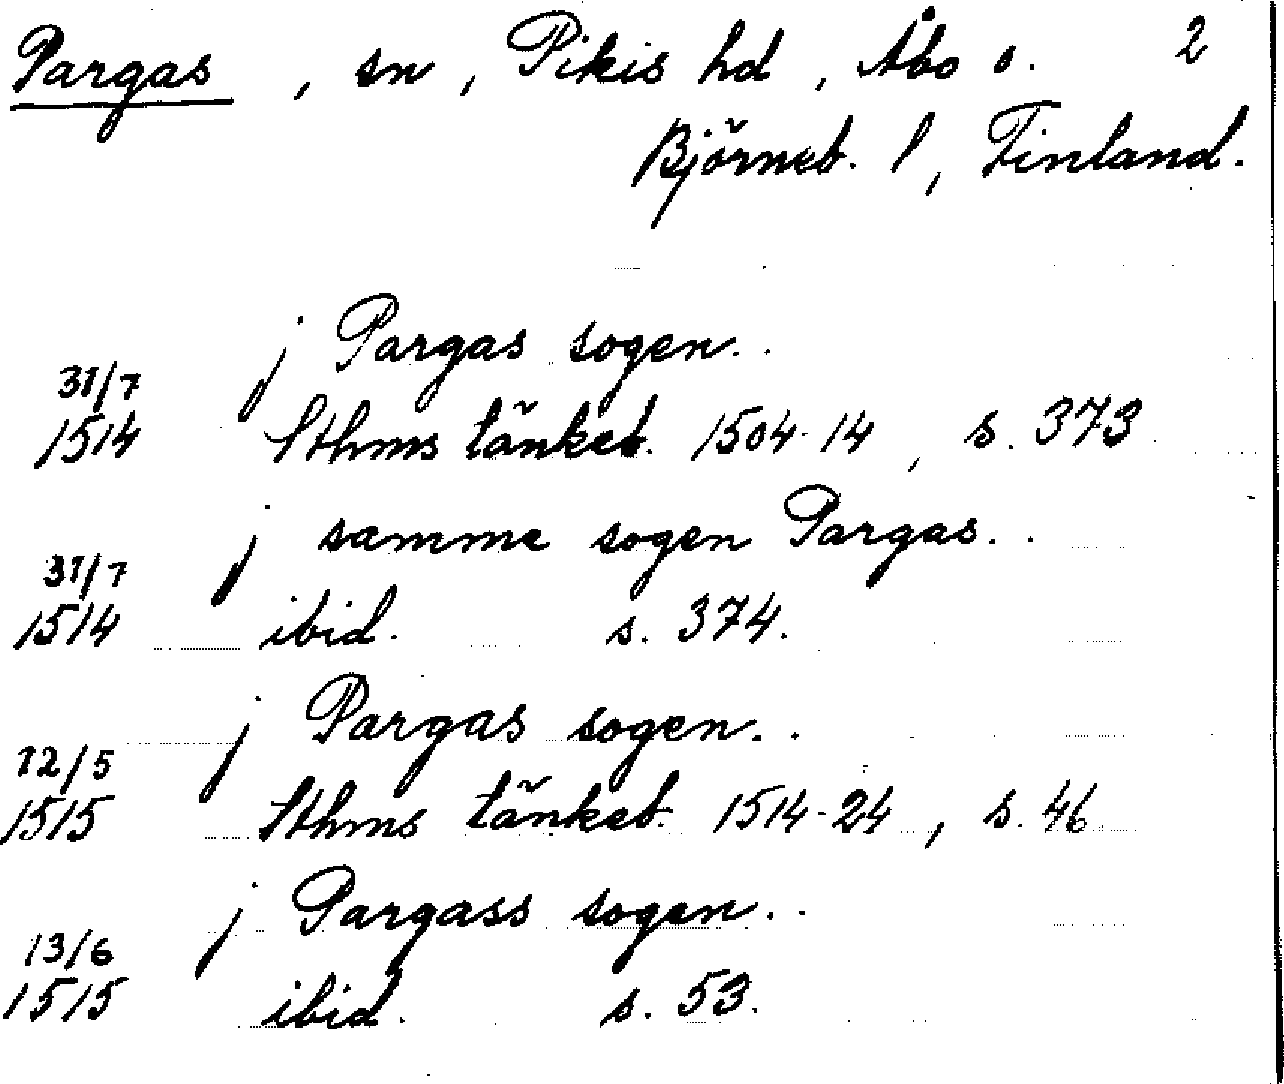 Pargas, sn, Pikis hd, Åbo o. 2
Björneb. l, Finland.
j Pargas sogen..
31/7
1514 Sthms tänkeb. 1504-14, s. 373
j samme sogen Pargas..
31/7
1514 ibid. s. 374.
j Pargas sogen..
12/5
1515 Sthms tänkeb. 1514-24, s. 46.
j Pargass sogen..
13/6
1515 ibid. s. 53.